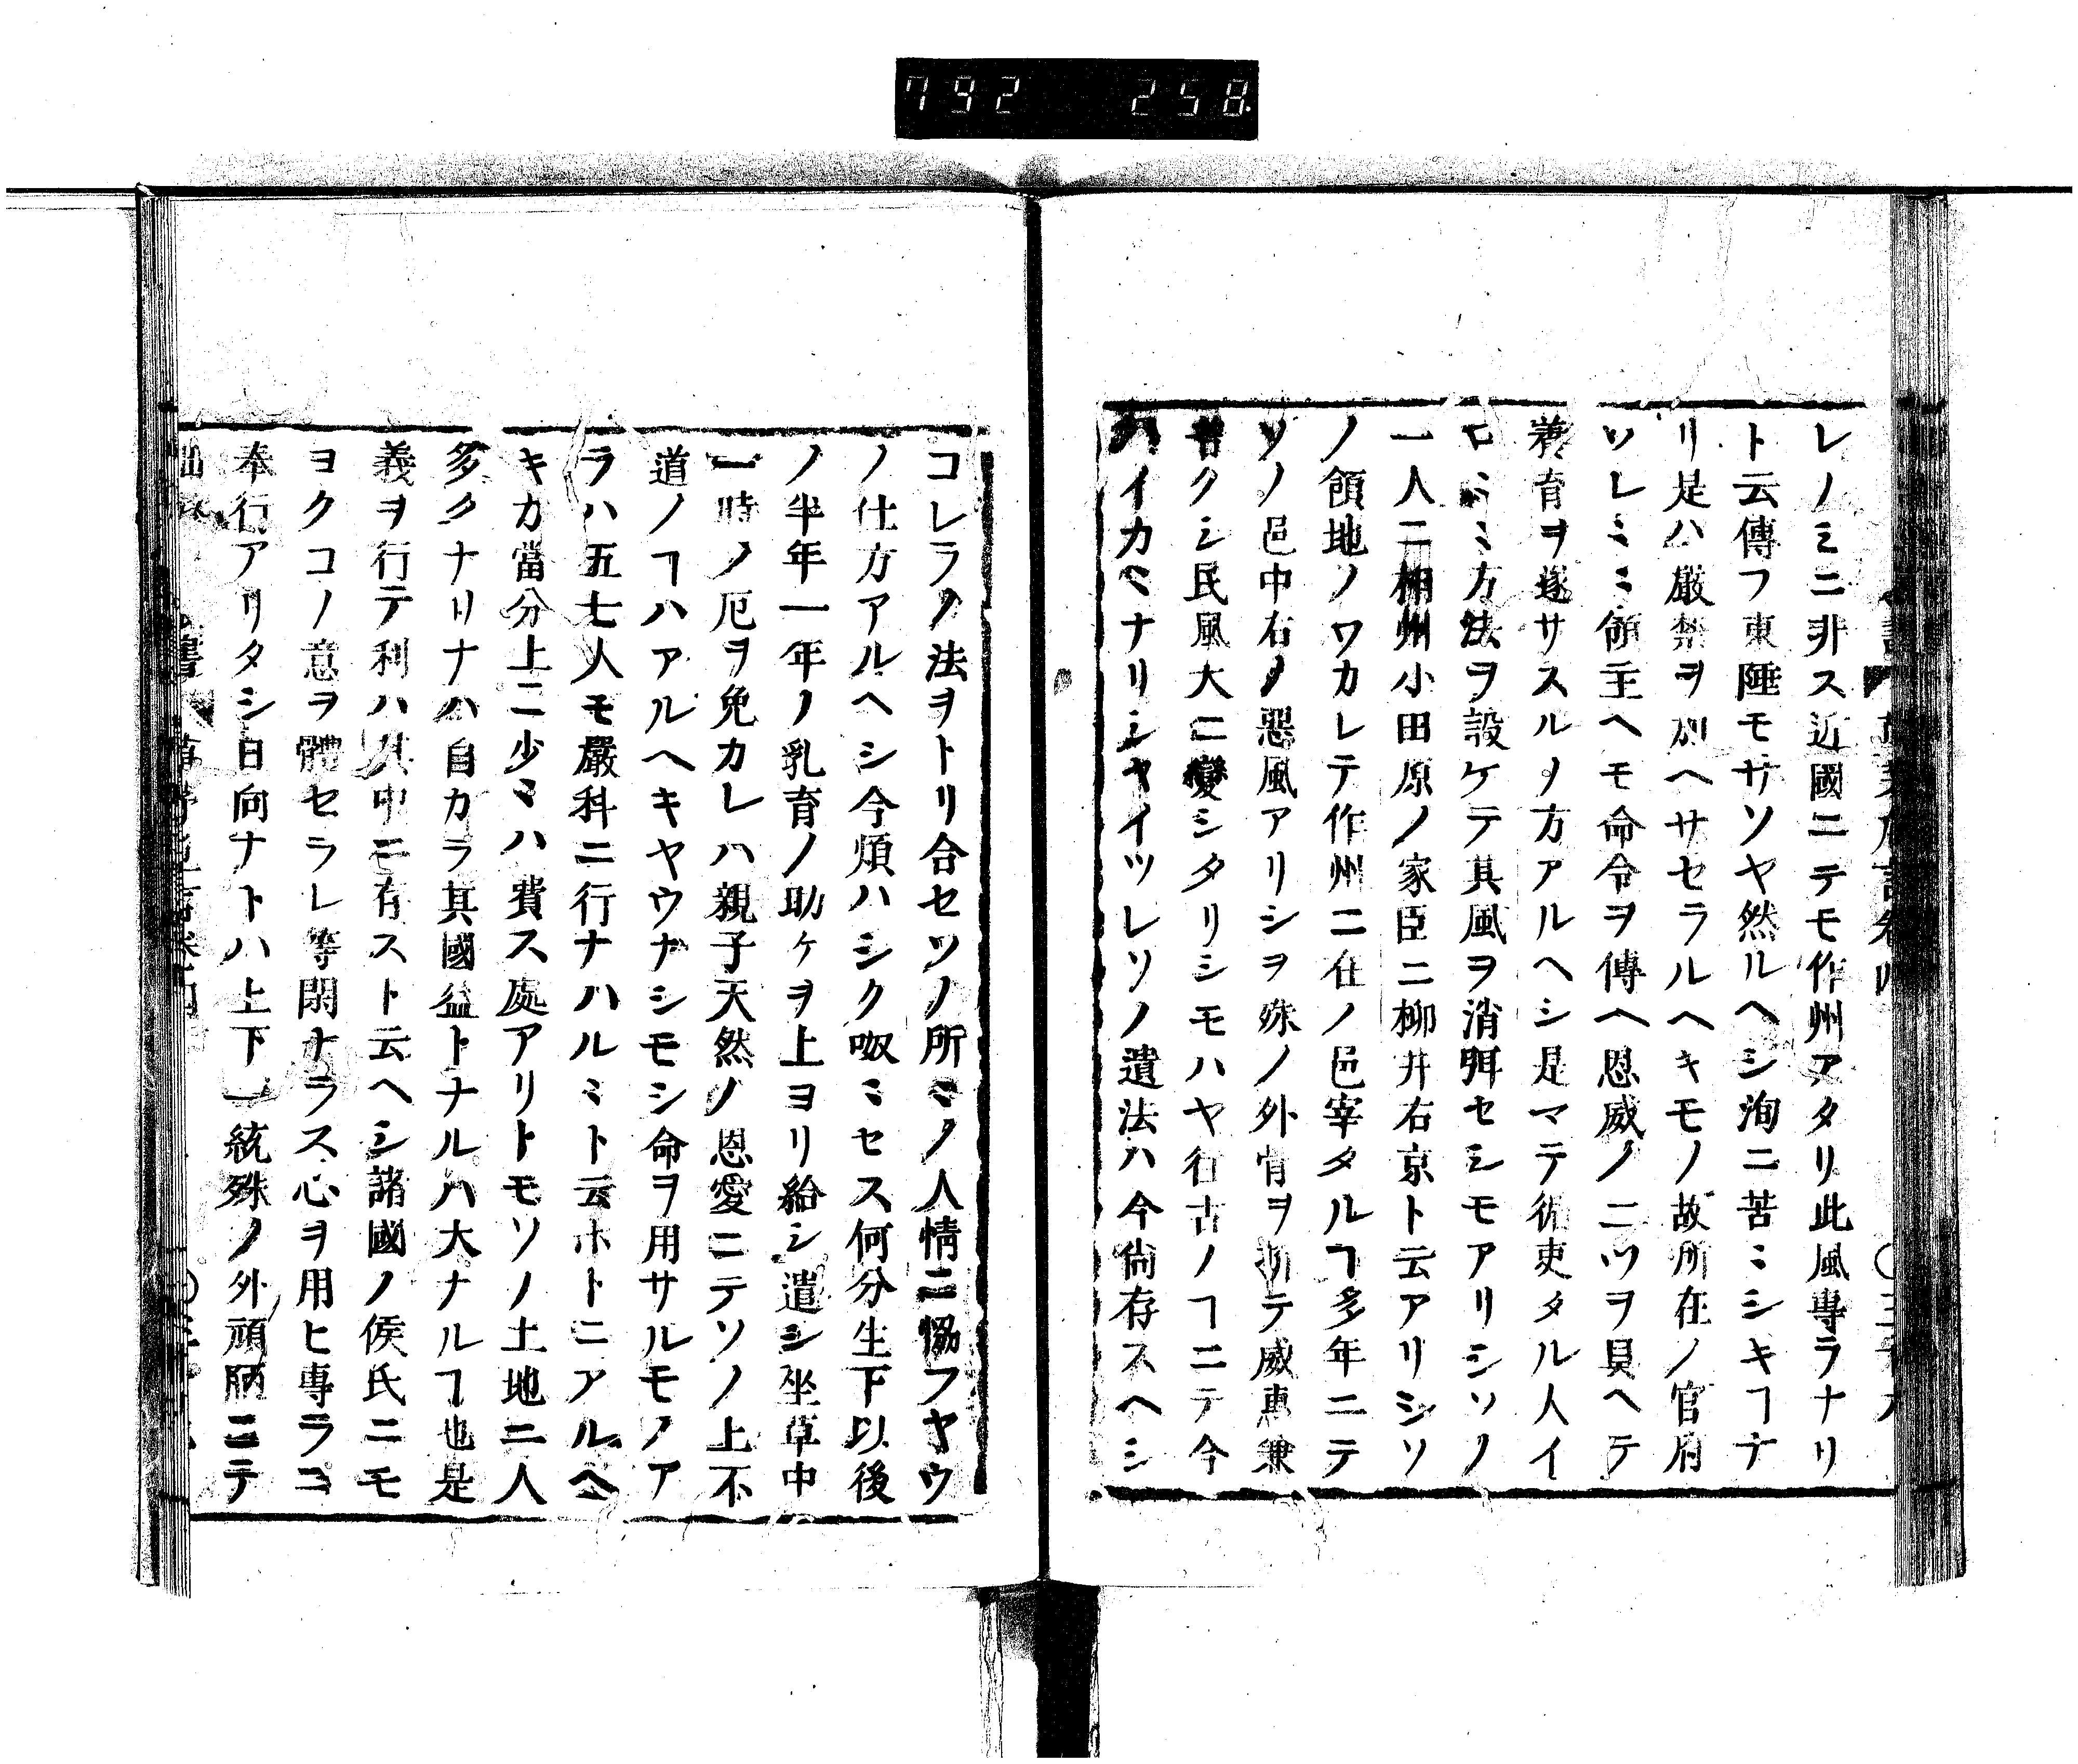 792 258
レノミニ非ス近國ニテモ作州アタリ此風專ラナリ
ト云傳フ東陲モサソヤ然ルヘシ洵ニ苦ミシキヿナ
リ是ハ厳禁ヲ加ヘサセラルヘキモノ故所在ノ官府
ソレミミ領主ヘモ命令ヲ傳ヘ恩威ノ二ツヲ具ヘテ
養育ヲ遂サスルノ方アルヘシ是マテ循吏タル人イ
モミミ方法ヲ設ケテ其風ヲ消弭セシモアリシソノ
一人ニ相州小田原ノ家臣ニ柳井右京ト云アリシソ
ノ領地ノワカレテ作州ニ在ノ邑宰タルヿ多年ニテ
ソノ邑中右ノ惡風アリシヲ殊ノ外骨ヲ折テ威惠兼
替クシ民風大ニ變シタリシモハヤ行古ノヿニテ今
ハイカヾナリシヤイツレソノ遺法ハ今尙存スヘシ
コレラノ法ヲトリ合セソノ所ミノ人情ニ愜フヤウ
ノ仕方アルヘシ今煩ハシク吸ミセス何分生下以後
ノ半年一年ノ乳育ノ助ケヲ上ヨリ給シ遣シ坐草中
一時ノ厄ヲ免カレハ親子天然ノ恩愛ニテソノ上不
道ノヿハアルヘキヤウナシモシ命ヲ用サルモノア
ラハ五七人モ嚴科ニ行ナハルミト云ホトニアルヘ
キカ當分上ニ少ミハ費ス處アリトモソノ土地ニ人
多クナリナハ自カラ其國益トナルハ大ナルヿ也是
義ヲ行テ利ハ其中モ有スト云ヘシ諸國ノ侯氏ニモ
ヨクコノ意ヲ體セラレ等閑ナラス心ヲ用ヒ專ラヨ
奉行アリタシ日向ナトハ上下一統殊ノ外頑陋ニテ